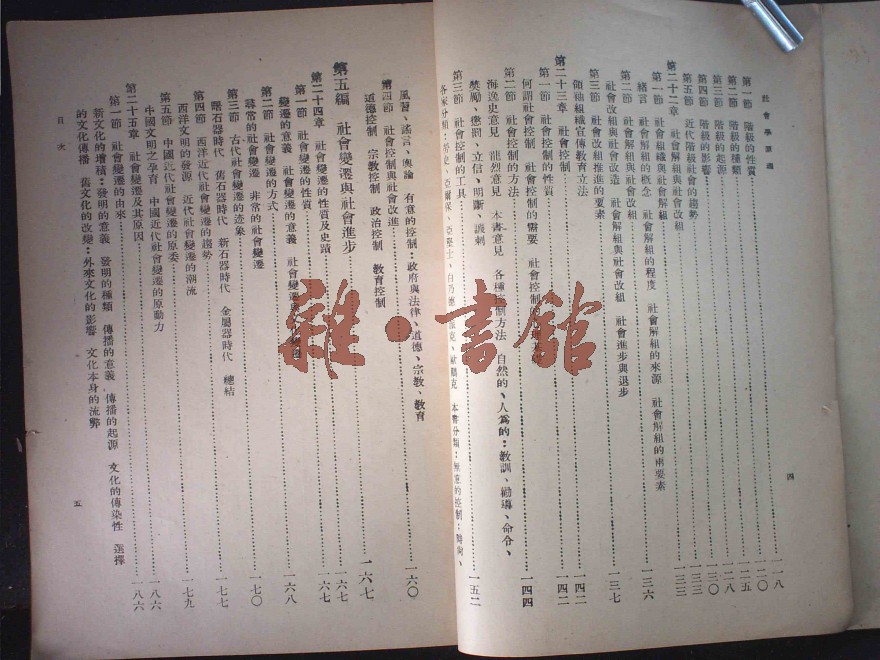 社會學原理
第一節 階級的性質 一一八
第二節 階級的種類 一二〇
第三節 階級的起源 一二五
第四節 階級的影響 一二八
第五節 近代階級社會的趨勢 一三〇
第二十二章 社會解組與社會改組 一三三
第一節 社會組織與社會解組 一三三
緒言 社會解組的概念 社會解組的程度 社會解組的來源 社會解組的兩要素
第二節 社會解組與社會改組 一三六
社會改組與社會改造 社會解組與社會改組 社會進步與退步
第三節 社會改組推進的要素 一三七
領袖組織宣傳教育立法
第二十三章 社會控制 一四二
第一節 社會控制的性質 一四二
何謂社會控制 社會控制的需要 社會控制
第二節 社會控制的方法 一四四
海逸史意見 龍烈意見 本書意見 各種控制方法 自然的、人為的：教訓、勸導、命令、
獎勵、懲罰、立信、明斷、譏刺
第三節 社會控制的工具 一五二
各家分類：
本書分類：無意的控制：
四
風習、謠言、輿論 有意的控制：政府與法律、道德、宗教、教育
第四節 社會控制與社會改進 一六〇
道德控制 宗教控制 政治控制 教育控制
第五編 社會變遷與社會進步 一六七
第二十四章 社會變遷的性質及史蹟 一六七
第一節 社會變遷的性質 一六七
變遷的意義 社會變遷的意義 社會變遷
第二節 社會變遷的方式 一六八
尋常的社會變遷 非常的社會變遷
第三節 古代社會變遷的迹象 一七〇
曙石器時代 舊石器時代 新石器時代 金屬器時代 總結
第四節 西洋近代社會變遷的趨勢 一七七
西洋文明的發源 近代社會變遷的潮流
第五節 中國近代社會變遷的原委 一七九
中國文明之孕育 中國近代社會變遷的原動力
第二十五章 社會變遷及其原因 一八六
第一節 社會變遷的由來 一八六
新文化的增積：發明的意義 發明的種類 傳播的意義 傳播的起源 文化的傳染性 選擇
的文化傳播 舊文化的改變：外來文化的影響 文化本身的流弊
目次
五
雜·書館